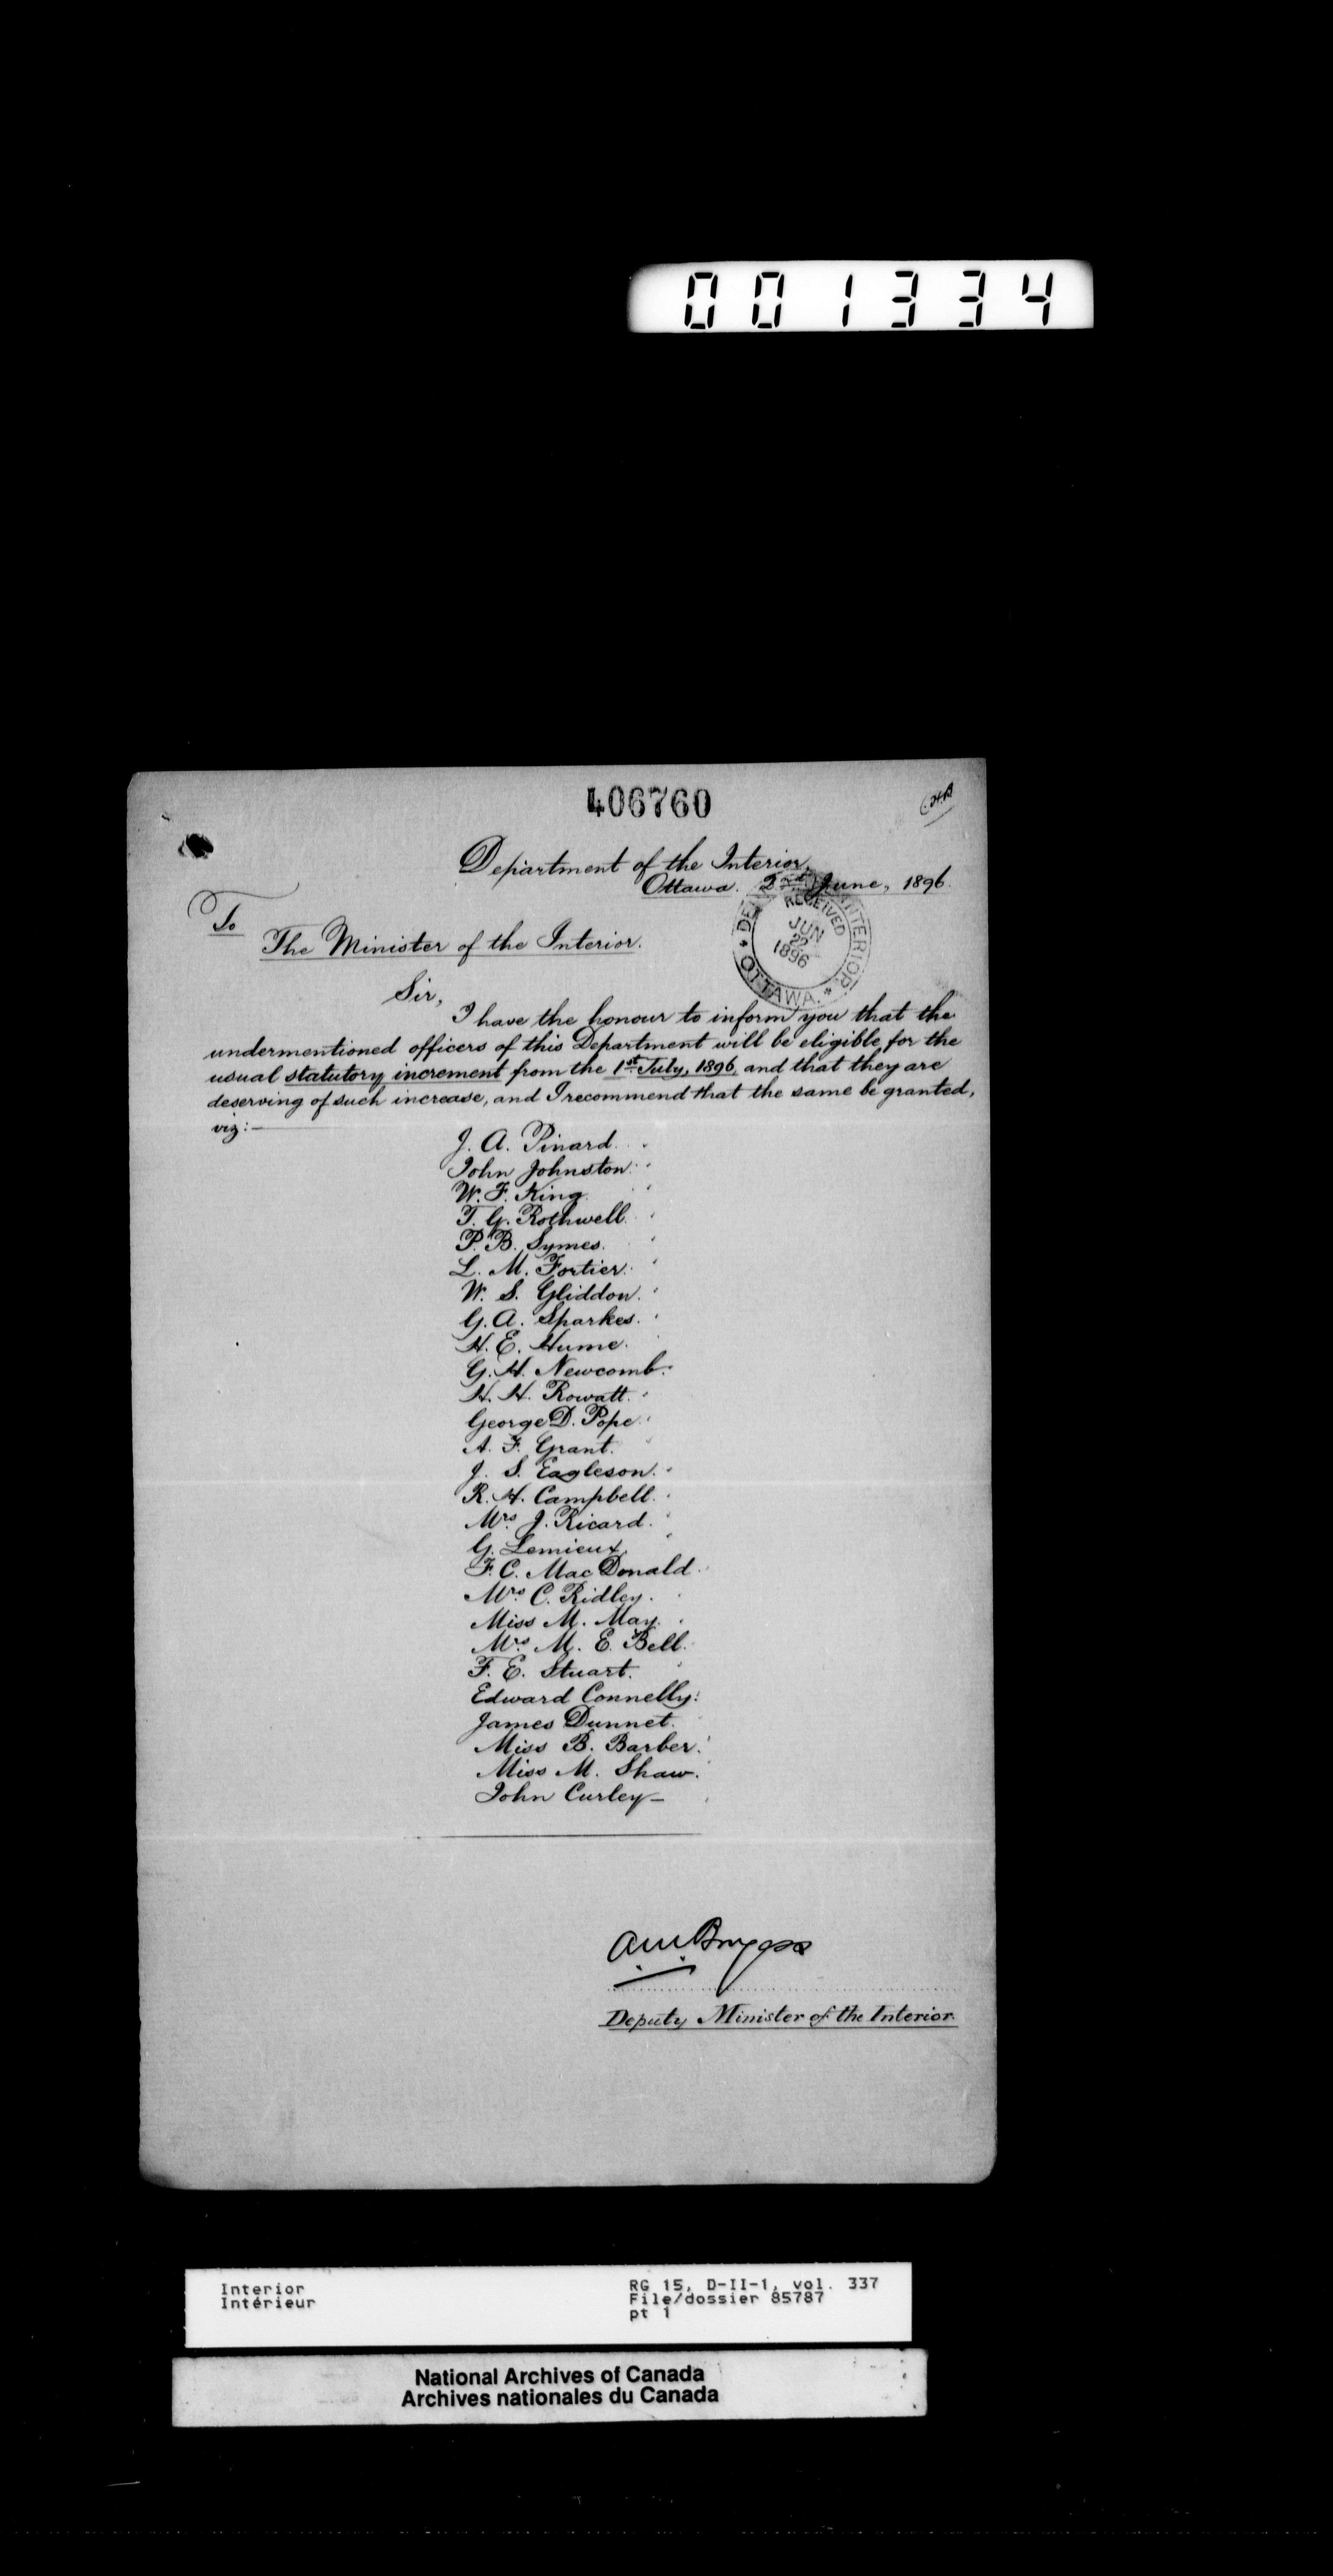 001334
406760
Department of the Interior,
Ottawa. 2nd June, 1896.
To
The Minister of the Interior.
DE INTERIOR
RECEIVED
JUN
22
1896
* OTTAWA. *
Sir,
I have the honour to inform you that the
undermentioned officers of this Department will be eligible for the
usual statutory increment from the 1st July, 1896, and that they are
deserving of such increase, and I recommend that the same be granted,
viz:—
J. A. Pinard.
John Johnston.
W. F. King.
T. G. Rothwell.
P. B. Symes.
L. M. Fortier.
W. S. Gliddon.
G. A. Sparkes.
H. E. Hume.
G. H. Newcomb.
H. H. Rowatt.
George D. Pope.
A. F. Grant.
J. S. Eagleson.
R. H. Campbell.
Mrs. J. Ricard.
G. Lemieux.
F. C. MacDonald.
Mrs. C. Ridley.
Miss M. May.
Mrs. M. E. Bell.
F. E. Stuart.
Edward Connelly.
James Dunnet.
Miss B. Barber.
Miss M. Shaw.
John Curley—
Deputy Minister of the Interior.
Interior
Intérieur
RG 15, D-II-1, vol. 337
File/dossier 85787
pt 1
National Archives of Canada
Archives nationales du Canada